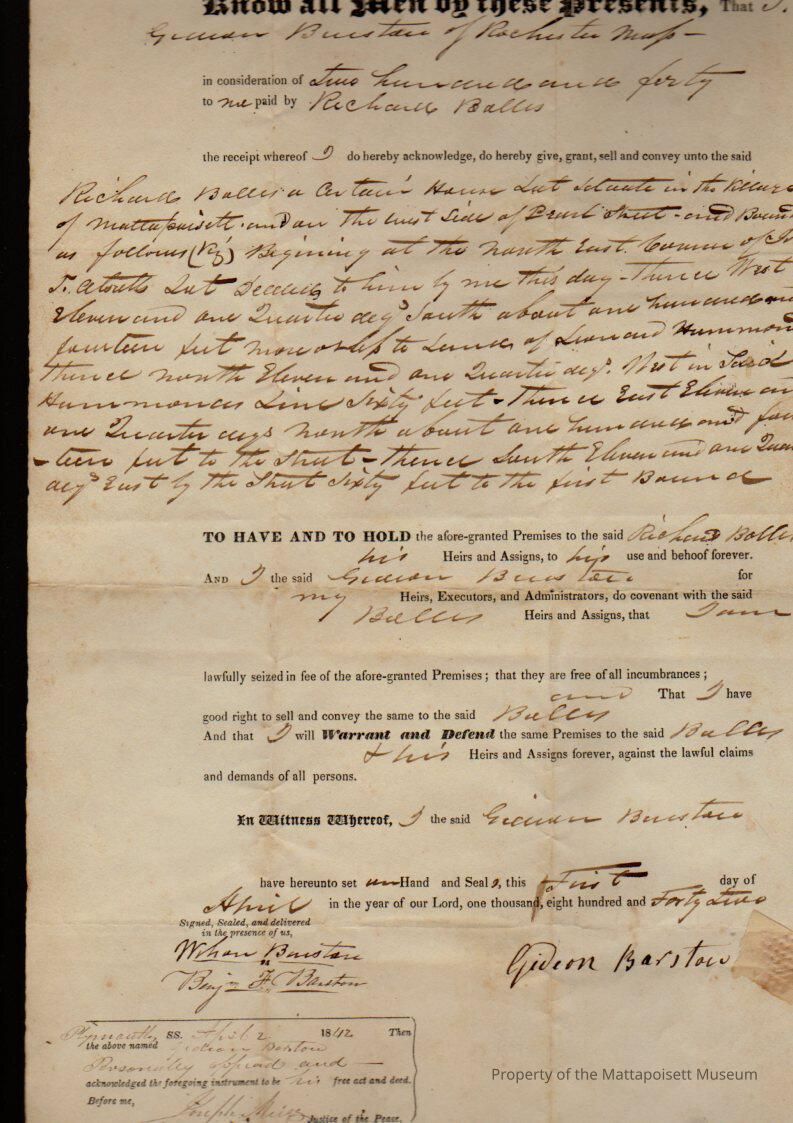 Know all Men by these Presents, That I.
Gideon Barstow of Rochester Mass
in consideration of two hundred and forty
to me paid by Richard Bolles
the receipt whereof I do hereby acknowledge, do hereby give, grant, sell and convey unto the said
Richard Bolles a Certain House Lot Situate in the Village
of Mattapoisett and on the west Side of Pearl Street - and Bound
as follows (Viz) Begining at the north East Corner of
Lot Deeded to him by me this day - thence West
Eleven and one Quarter degs South about one hundred and
fourteen feet more or less to Land of Leonard Hammond
thence north Eleven and one Quarter degs. West in Said
Hammonds Line Sixty feet - thence East Eleven an
one Quarter degs north about one hundred and four
-teen feet to the Street - thence South Eleven and one Quar
degs East by the Street Sixty feet to the first Bound
TO HAVE AND TO HOLD the afore-granted Premises to the said Richard Bolles
his Heirs and Assigns, to his use and behoof forever.
AND I the said Gideon Barstow for
my Heirs, Executors, and Administrators, do covenant with the said
Bolles Heirs and Assigns, that I am
lawfully seized in fee of the afore-granted Premises; that they are free of all incumbrances;
and That I have
good right to sell and convey the same to the said Bolles
And that I will Warrant and Defend the same Premises to the said Bolles
& his Heirs and Assigns forever, against the lawful claims
and demands of all persons.
In Witness Whereof, I the said Gideon Barstow
have hereunto set my Hand and Seal, this First day of
April in the year of our Lord, one thousand, eight hundred and Forty two
Signed, Sealed, and delivered
in the presence of us,
Wilson Barstow
Benj F. Barstow
Gideon Barstow
Plymouth SS. April 2 1842 Then
the above named Gideon Barstow
Personally appeard and
acknowledged the foregoing instrument to be his free act and deed.
Before me,
Joseph Meigs Justice of the Peace.
Property of the Mattapoisett Museum